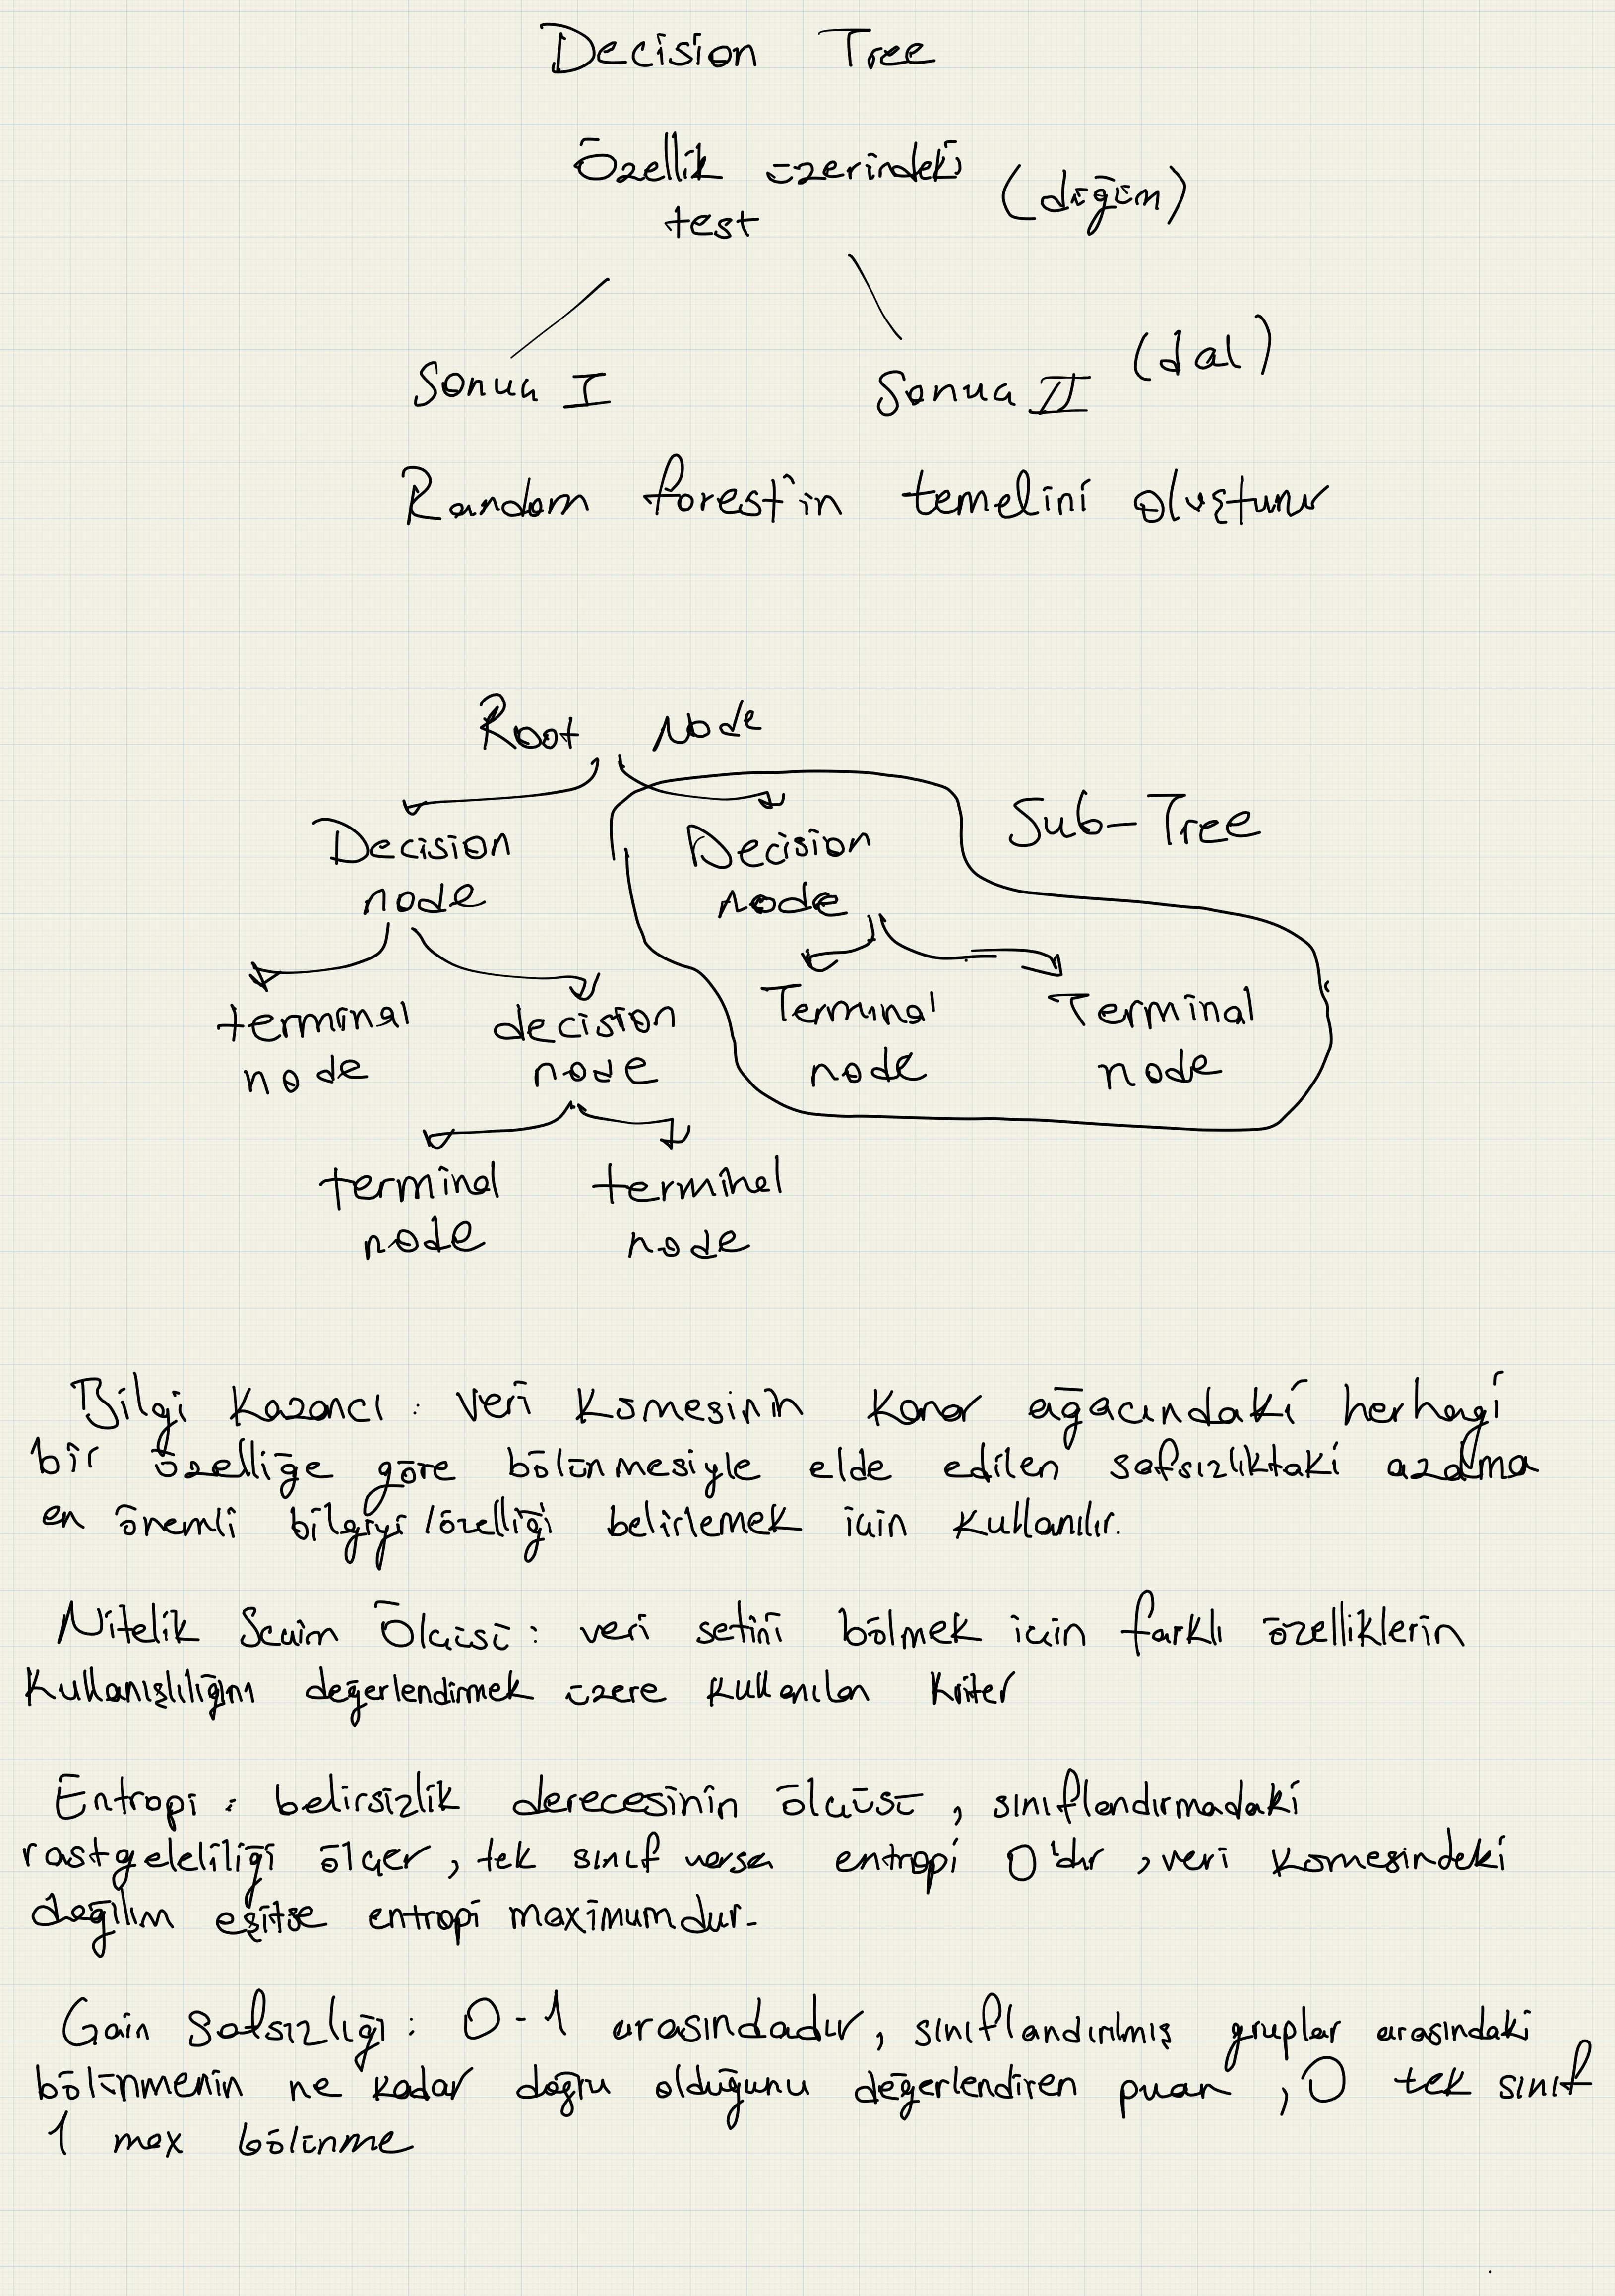 Decision Tree
Özellik üzerindeki (düğüm)
test
Sonuç I Sonuç II (dal)
Random forest'in temelini oluşturur
Root Node
Decision Decision Sub-Tree
node node
terminal decision Terminal Terminal
node node node node
terminal terminal
node node
Bilgi Kazancı : veri kümesinin karar ağacındaki herhagi
bir özelliğe göre bölünmesiyle elde edilen safsızlıktaki azalma
en önemli bilgiyi /özelliği belirlemek için kullanılır.
Nitelik Seçim Ölçüsü : veri setini bölmek için farklı özelliklerin
kullanışlılığını değerlendirmek üzere kullanılan kriter
Entropi : belirsizlik derecesinin ölçüsü , sınıflandırmadaki
rastgeleliliği ölçer , tek sınıf varsa entropi 0'dır , veri kümesindeki
dağılım eşitse entropi maximumdur.
Gain Safsızlığı : 0-1 arasındadır, sınıflandırılmış gruplar arasındaki
bölünmenin ne kadar doğru olduğunu değerlendiren puan , 0 tek sınıf
1 max bölünme